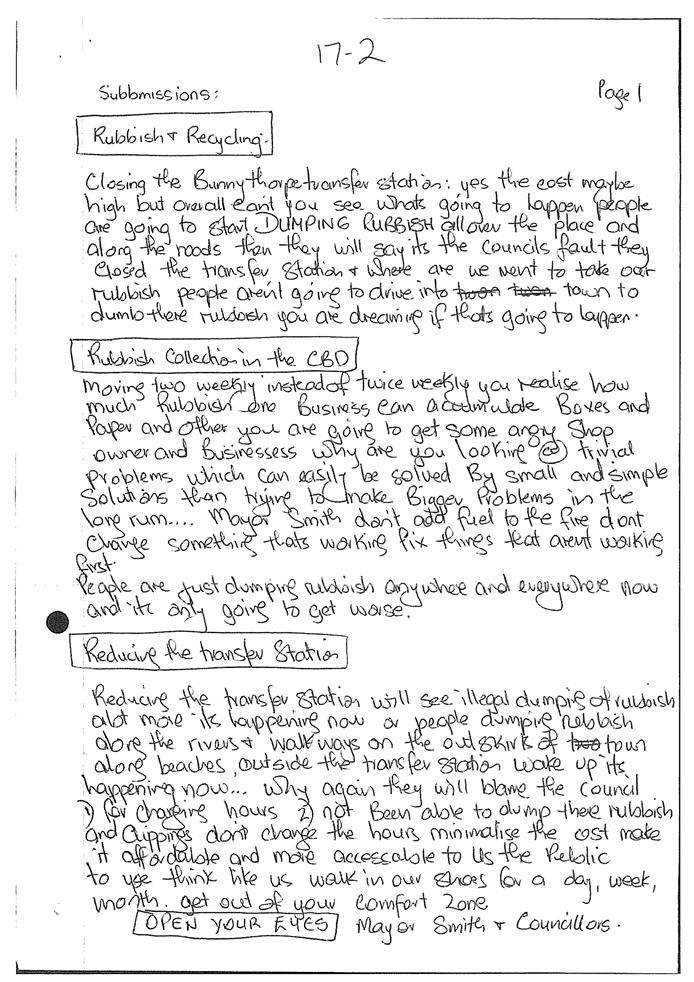 17-2
Subbmissions:
Page 1
Rubbish & Recycling.
Closing the Bunnythorpe transfer station: yes the cost maybe
high but overall cant you see whats going to happen people
are going to start DUMPING RUBBISH all over the place and
along the roads then they will say its the Councils fault they
Closed the transfer Station & where are we went to take our
rubbish people aren't going to drive into twon twon town to
dumb there rubbish you are dreaming if thats going to happen.
Rubbish Collection in the CBD
Moving two weekly instead of twice weekly you realise how
much Rubbish one Business can accumulate Boxes and
Paper and other you are going to get some angry Shop
owner and Businessess why are you looking @ trivial
Problems which can easily be solved By small and simple
Solutions than trying to make Bigger Problems in the
long rum.... Mayor Smith don't add fuel to the fire dont
Change something thats working fix things that arent working
first.
People are just dumping rubbish anywhere and everywhere now
and its only going to get worse.
Reducing the transfer Station
Reducing the transfer station will see illegal dumping of rubbish
alot more its happening now or people dumping rubbish
along the rivers & walkways on the outskirts of two town
along beaches, outside the transfer station wake up its
happening now... why again they will blame the council
1) for charging hours 2) not Been able to dump there rubbish
and Clippings don't change the hours minimalise the cost make
it affordable and more accessable to Us the Public
to use think like us walk in our shoes for a day, week,
month. get out of your Comfort Zone
OPEN YOUR EYES Mayor Smith & Councillors.